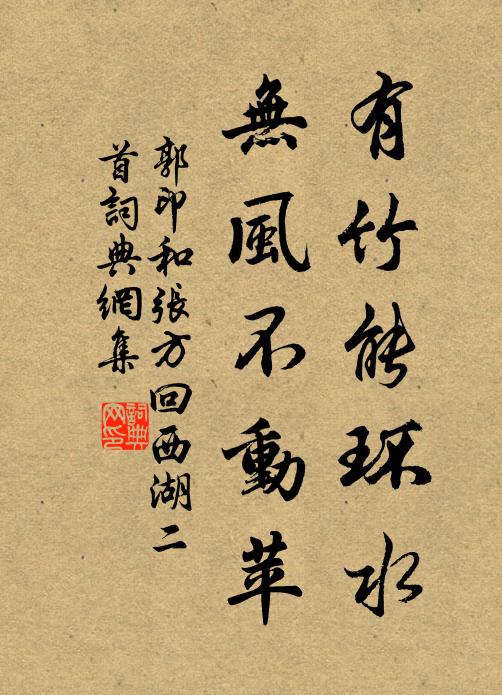 有竹能环水
無風不動苹
郭印和張方回西湖二
首詞典網集
詞典網印